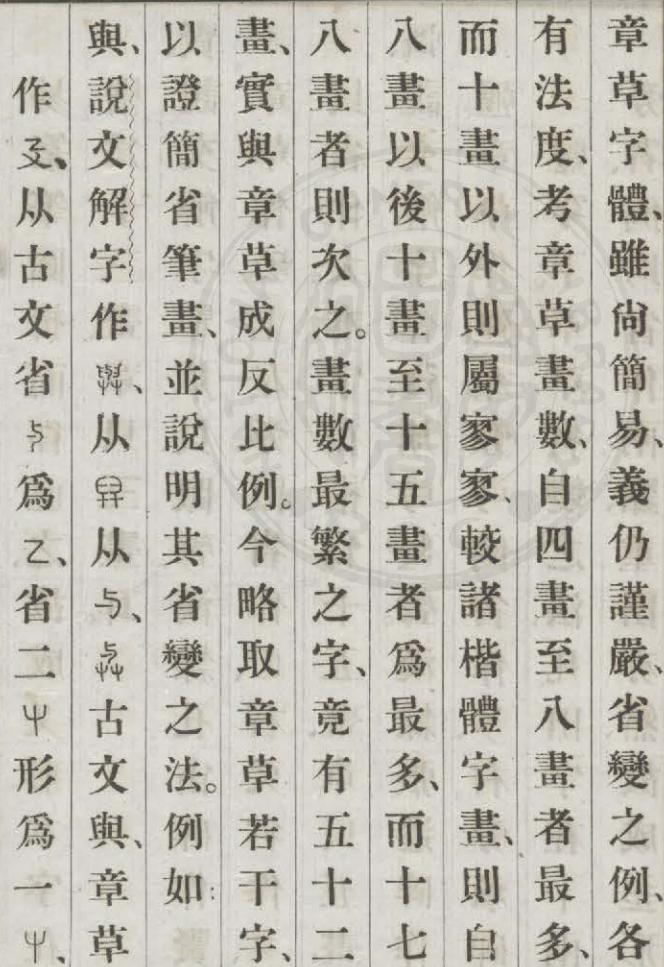 章草字體、雖尙簡易、義仍謹嚴、省變之例、各
有法度、考章草畫數、自四畫至八畫者最多、
而十畫以外則屬寥寥、較諸楷體字畫、則自
八畫以後十畫至十五畫者爲最多、而十七
八畫者則次之。畫數最繁之字、竟有五十二
畫、實與章草成反比例。今略取章草若干字、
以證簡省筆畫、並說明其省變之法。例如:
與、說文解字作𦦲、从舁从与、古文與、章草
作、从古文省与爲乙、省二屮形爲一屮、